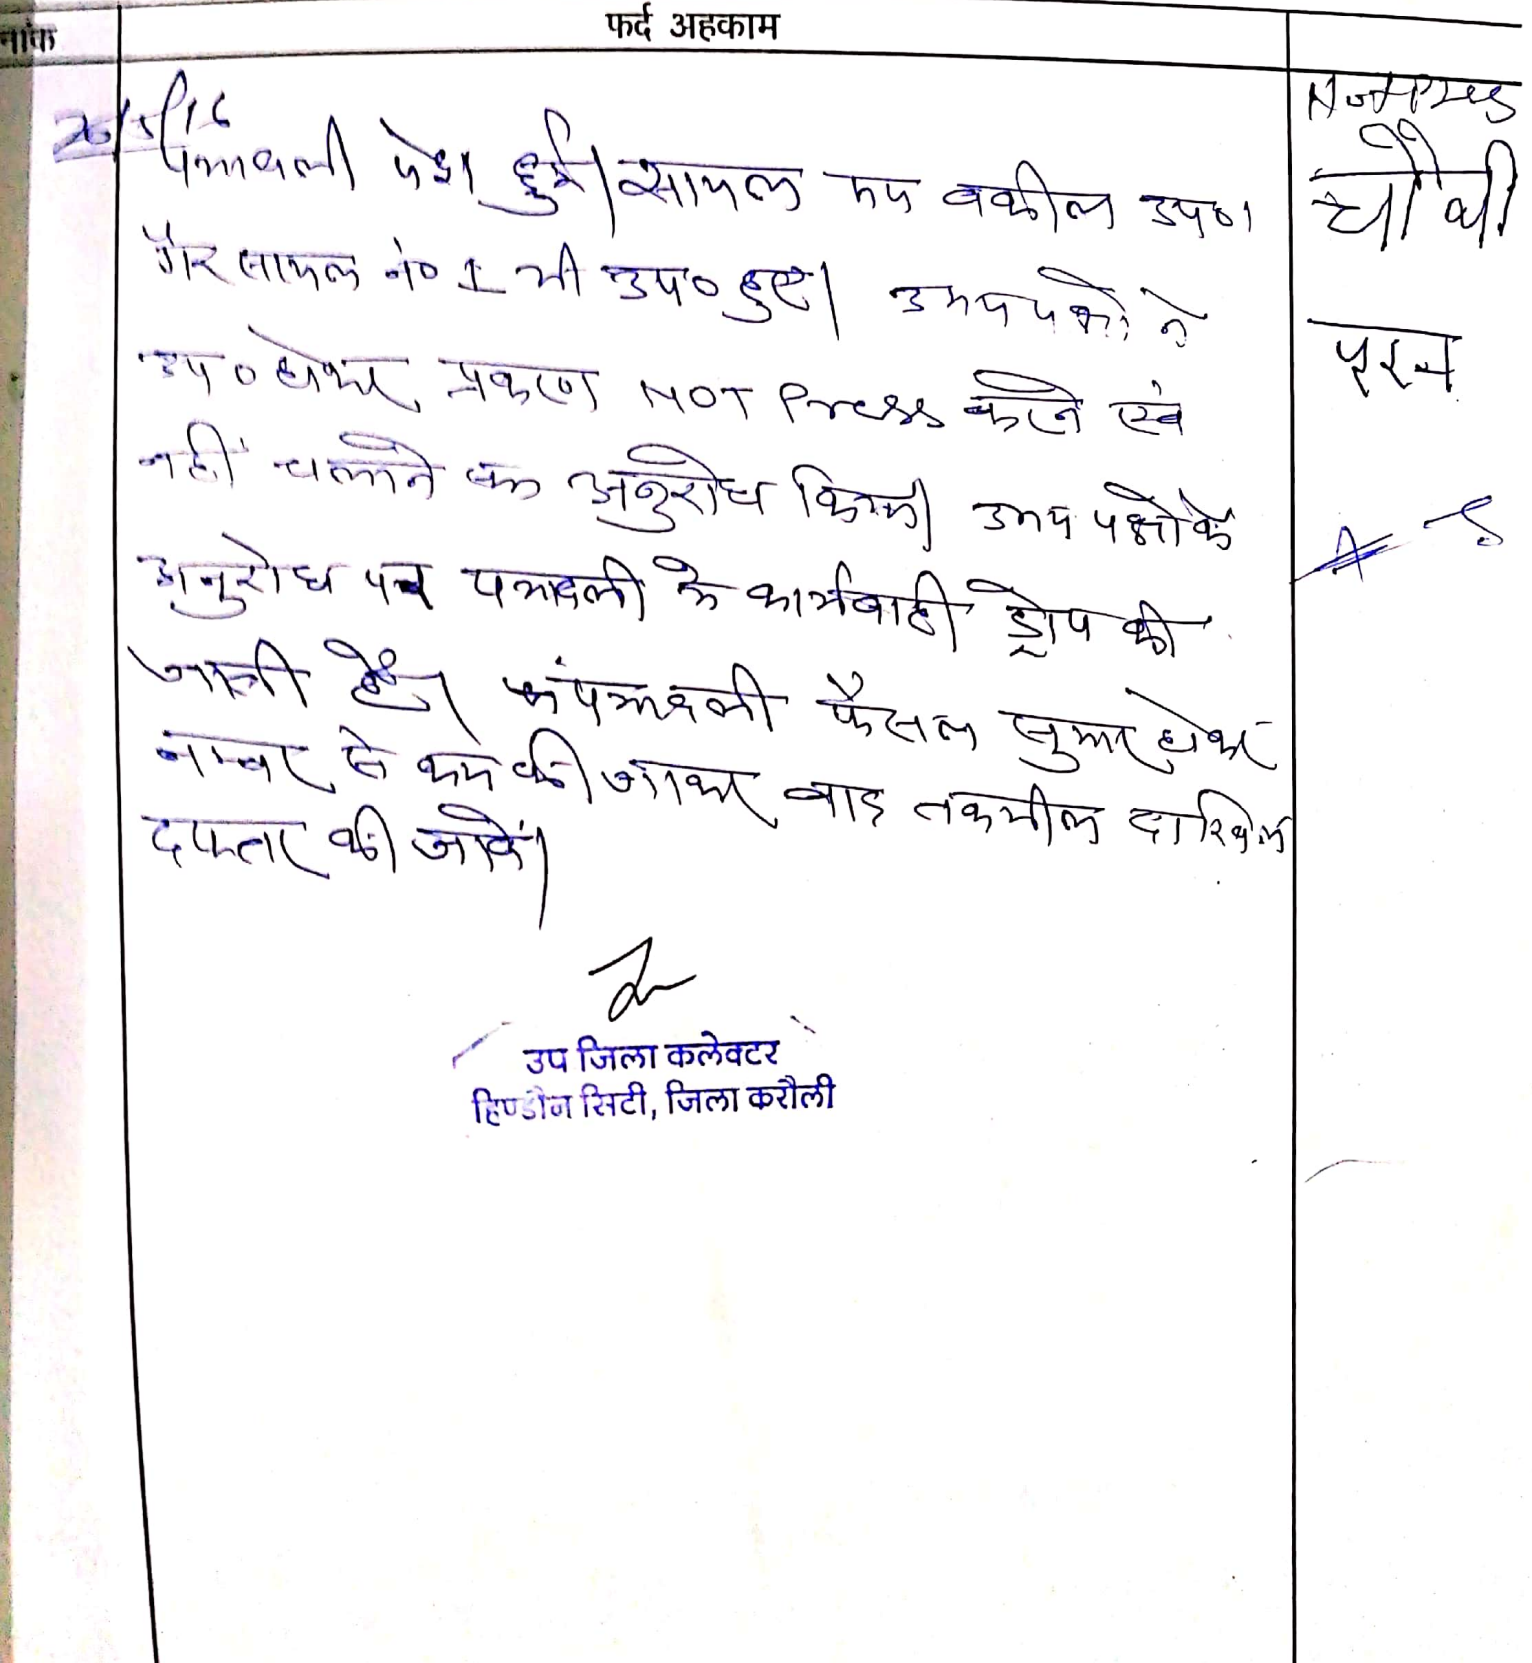 नांक
फर्द अहकाम
26/5/16
पत्रावली पेश हुई। सायल मय वकील उप०।
गैर सायल नं० 1 भी उप० हुए। उभय पक्षों ने
उप० होकर प्रकरण NOT Press करने एवं
नहीं चलाने का अनुरोध किया। उभय पक्षों के
अनुरोध पर पत्रावली के कार्यवाही ड्रोप की
जाती है। पत्रावली फैसल शुमार होकर
नम्बर से कम की जाकर बाद तकमील दाखिल
दफ्तर की जावें।
उप जिला कलेक्टर
हिण्डौन सिटी, जिला करौली
Not Press
चौथी
पूरन